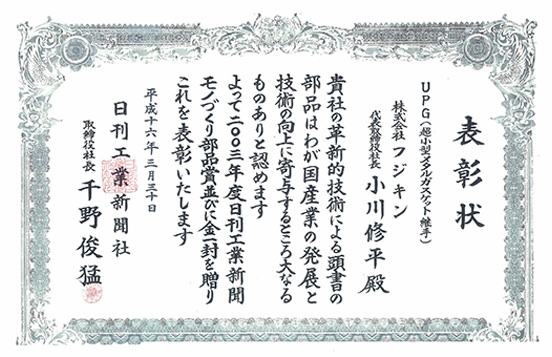 表彰状
UPG(超小型メタルガスケット継手)
株式会社フジキン
代表取締役社長 小川修平殿
貴社の革新的技術による頭書の
部品はわが国産業の発展と
技術の向上に寄与するところ大なる
ものありと認めます
よって二〇〇三年度日刊工業新聞
モノづくり部品賞並びに金一封を贈り
これを表彰いたします
平成十六年三月三十日
日刊工業新聞社
取締役社長 千野俊猛